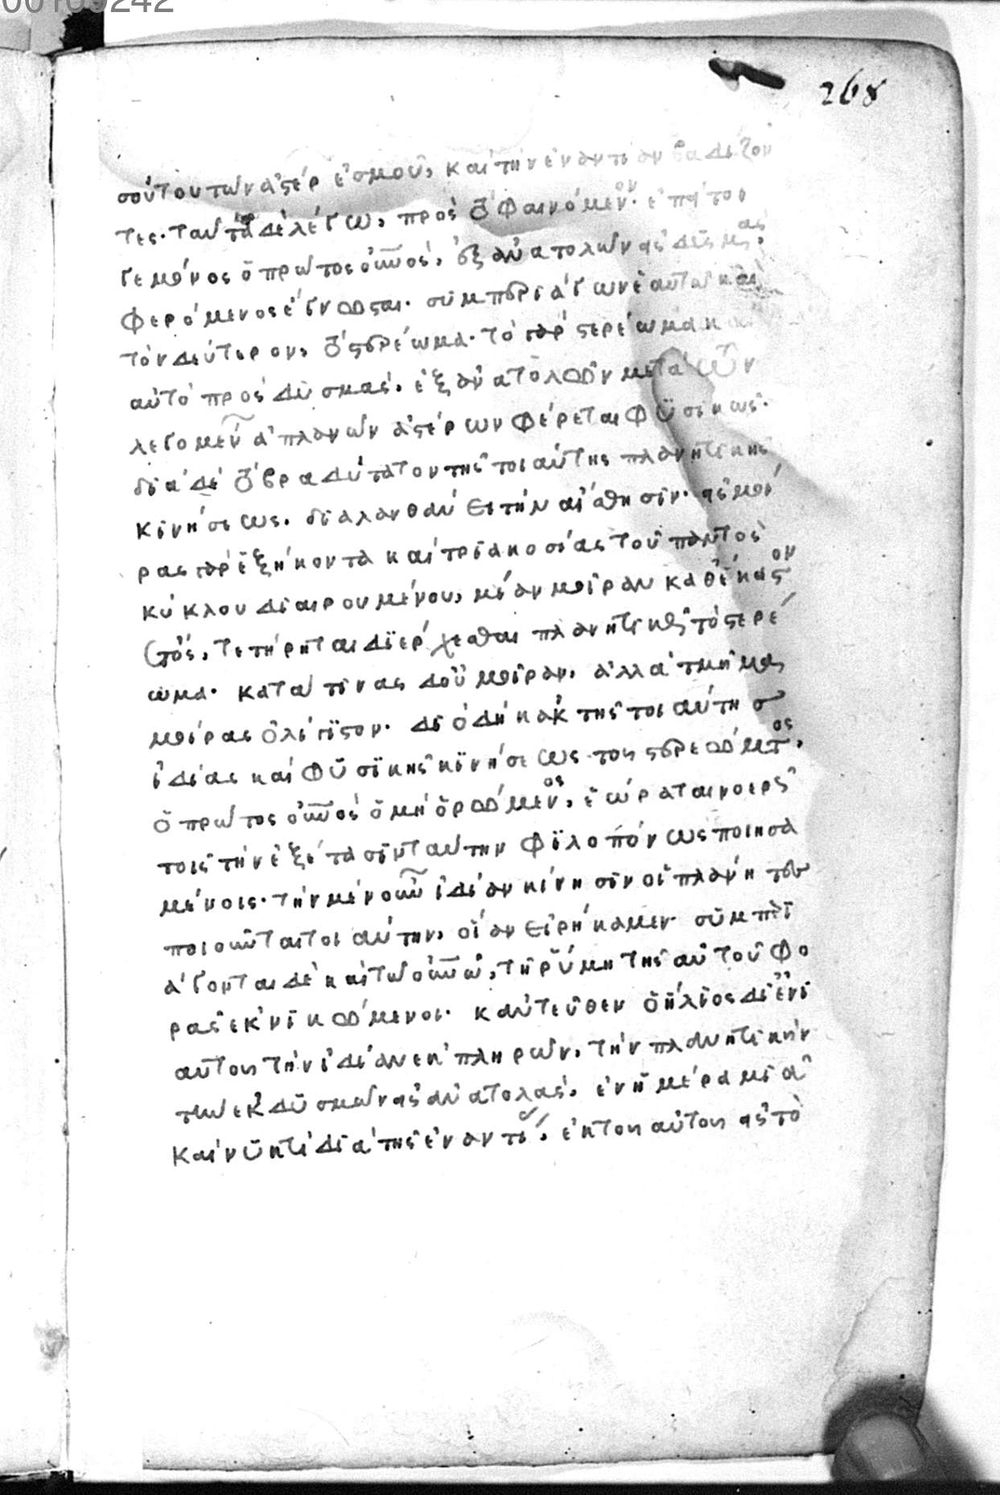 00109242
268
σούτου τῶν ἀστέρ ἐσμοῦ, καὶ τὴν ἐναντίαν βαδίζον
τες. ταῦτα δὲ λέγω, πρὸς τὸ φαινόμενον. ἐπεί τοι
γε μόνος ὁ πρῶτος οὐνος, ἐξ ἀνατολῶν εἰς δυσμας,
φερόμενος ἔγνωσται. συμπεριάγων ἑαυτῶ καὶ
τὸν δεύτερον, τὸ στερέωμα. τὸ γὰρ στερέωμα
αὐτὸ πρὸς δυσμάς, ἐξ ἀνατολῶν μετὰ τῶν
λεγομένων ἀπλανῶν ἀστέρων φέρεται φυσικῶς.
διὰ δὲ τὸ βραδύτατον τῆς τοιαύτης πλανητικῆς
κινήσεως. διαλανθάνει τὴν αἴσθησιν. εἰς μοί
ρας γὰρ ἑξήκοντα καὶ τριακοσίας τοῦ παντὸς
κύκλου διαιρουμένου, μίαν μοῖραν καθ' ἕκαστον
ἔτος, τετήρηται διέρχεσθαι πλανητικῶς τὸ στερέ
ωμα. κατά τινας δ' οὐ μοῖραν, ἀλλὰ τμῆμα
μοίρας ὀλίγιστον. διὸ δὴ κἀκ τῆς τοιαύτης
ἰδίας καὶ φυσικῆς κινήσεως τοῦ στερεώματος,
ὁ πρῶτος οὐνος ὁ μὴ ὁρώμενος, ἑώραται νοερῶς
τοῖς τὴν ἐξέτασιν ταύτην φιλοπόνως ποιησα
μένοις. τὴν μὲν οὖν ἰδίαν κίνησιν οἱ πλάνητες
ποιοῦνται τοιαύτην, οἵαν εἰρήκαμεν. συμπερι
άγονται δὲ καὶ τῶ οὐνω, τῆ ῥύμη τῆς αὐτοῦ φο
ρᾶς ἐκνικώμενοι. κἀντεῦθεν ὁ ἥλιος δι' ἑνι
αυτοῦ τὴν ἰδίαν ἐκπληρῶν, τὴν πλανητικὴν
τὴν ἐκ δυσμῶν εἰς ἀνατολάς, ἐν ἡμέρα μιᾶ
καὶ νυκτὶ διὰ τῆς ἐναντίας, ἐκ τοῦ αὐτοῦ εἰς τὸ